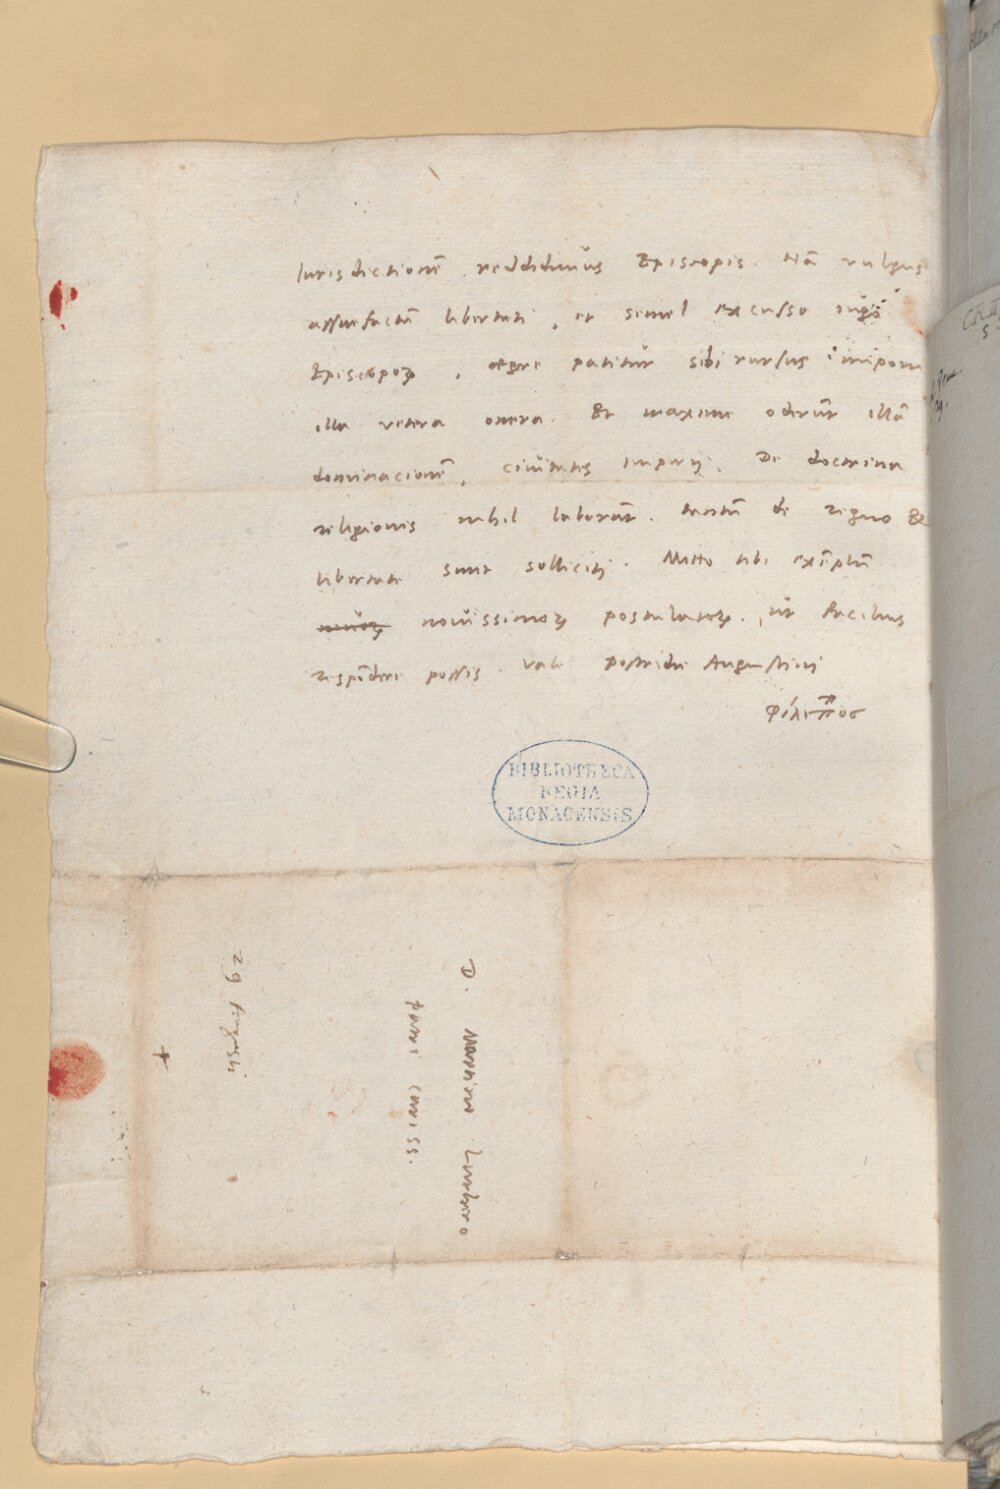 Iurisdictionē reddidimus Episcopis. Nā vulgus
assuefactū libertati, et semel excusso iugo
Episcopoꝝ, aegre patitur sibi rursus imponi
illa vetera onera. Et maxime oderūt illā
dominacionē, ciuitates imperij. De doctrina
religionis nihil laborāt. tantū de regno &
libertate sunt solliciti. Mitto tibi exēplū
nouissimoꝝ postulatoꝝ, ut facilius
respōdere possis. Vale postridie Augustini
Φίλιππος
BIBLIOTHECA
REGIA
MONACENSIS
D. Martino Luthero
patri cariss.
29 Augusti